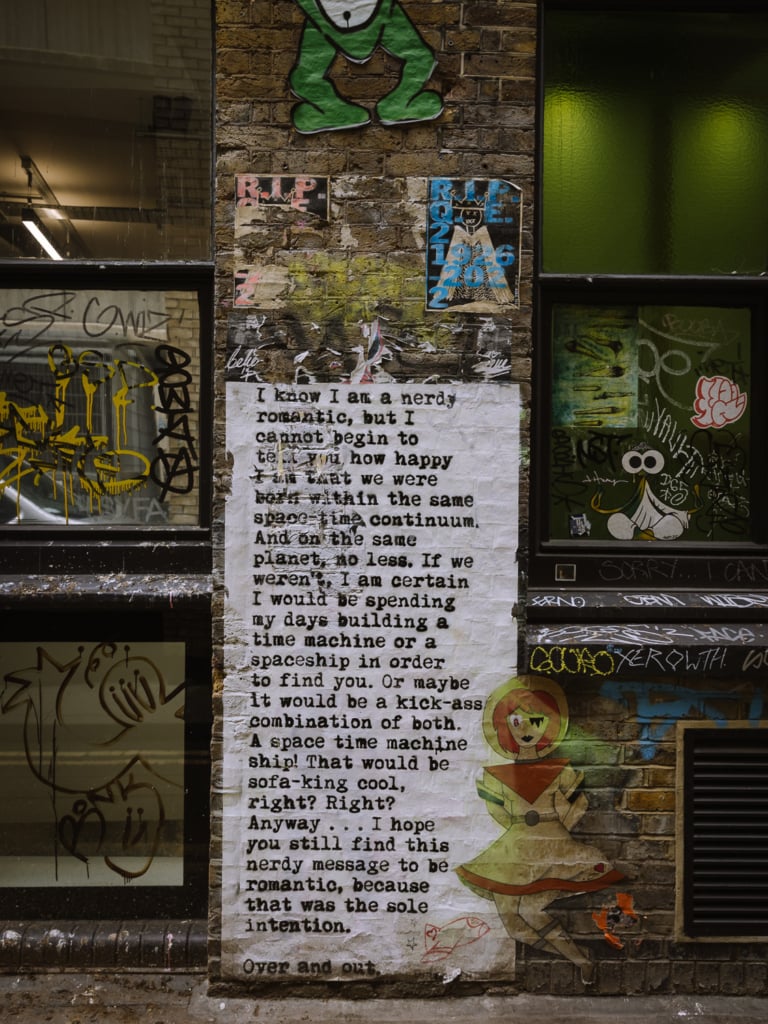 R.I.P.
R.I.P.
Q.E.
2
1926
202
2
I know I am a nerdy
romantic, but I
cannot begin to
tell you how happy
I am that we were
born within the same
space-time continuum.
And on the same
planet, no less. If we
weren't, I am certain
I would be spending
my days building a
time machine or a
spaceship in order
to find you. Or maybe
it would be a kick-ass
combination of both.
A space time machine
ship! That would be
sofa-king cool,
right? Right?
Anyway . . . I hope
you still find this
nerdy message to be
romantic, because
that was the sole
intention.
Over and out.
SORRY... I CAN
XEROWTH
BONK